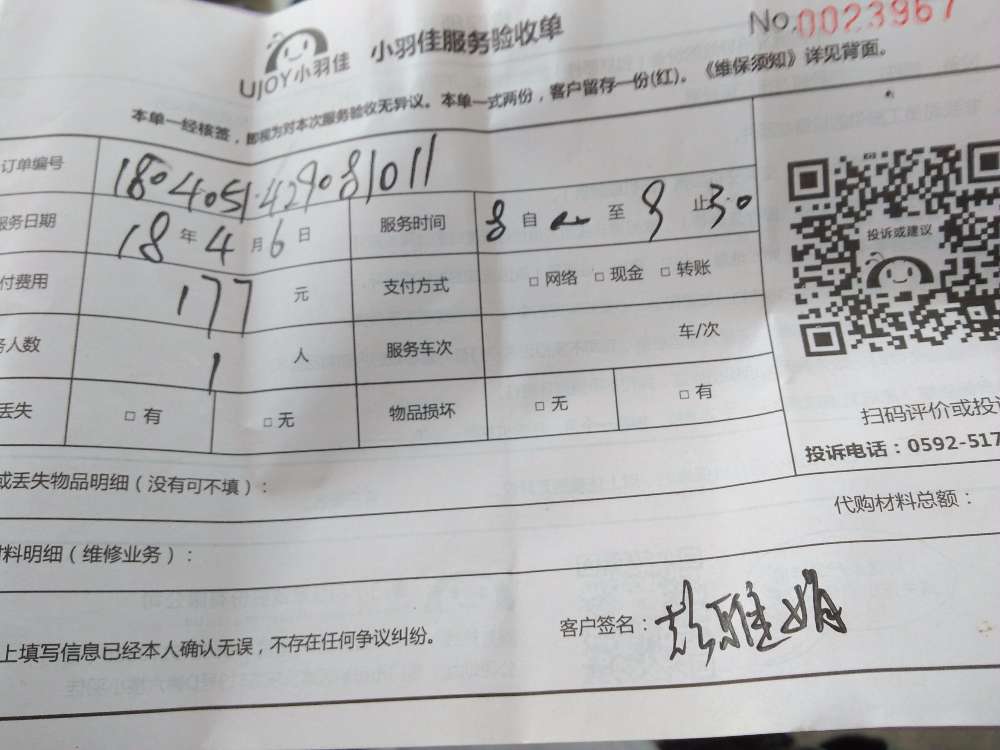 UJOY小羽佳 小羽佳服务验收单 No.0023967
本单一经核签，即视为对本次服务验收无异议。本单一式两份，客户留存一份(红)。《维保须知》详见背面。
订单编号 1804051429081011
服务日期 18 年 4 月 6 日 服务时间 8 自 至 9 止30
付费用 177 元 支付方式 □ 网络 □ 现金 □ 转账
务人数 1 人 服务车次 车/次
丢失 □ 有 □ 无 物品损坏 □ 无 □ 有
投诉或建议
扫码评价或投诉
投诉电话：0592-517
或丢失物品明细（没有可不填）：
代购材料总额：
材料明细（维修业务）：
上填写信息已经本人确认无误，不存在任何争议纠纷。
客户签名：雅娟